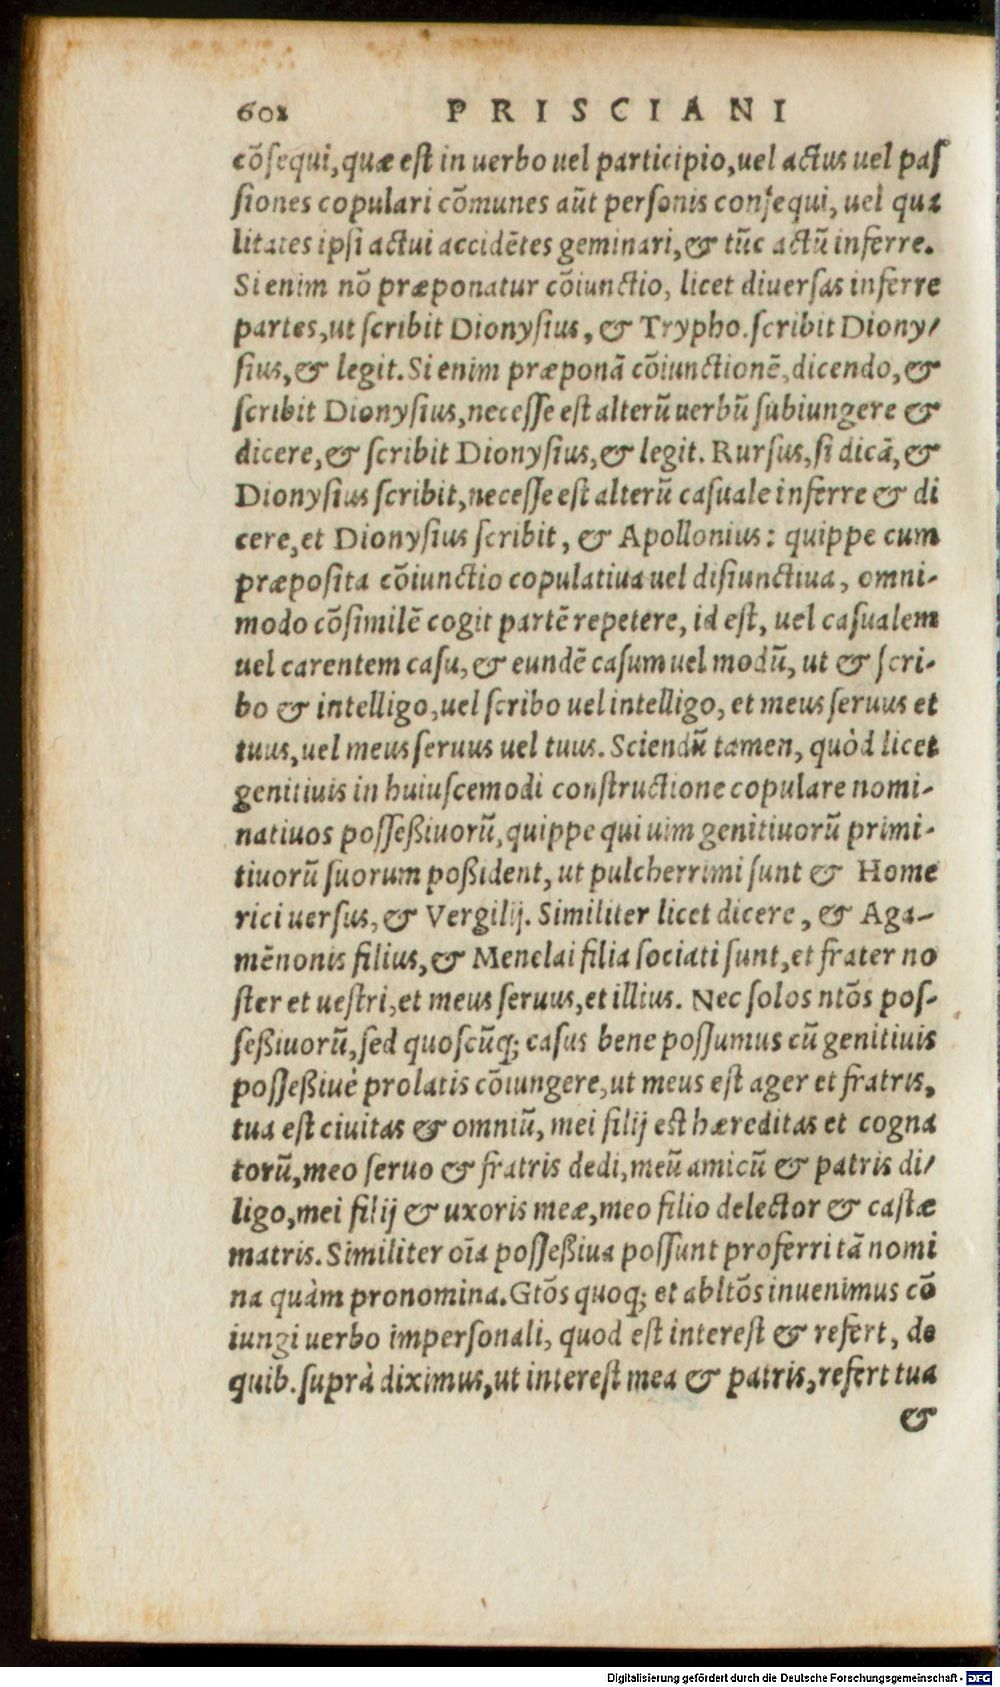 602 PRISCIANI
cõſequi, quæ eſt in uerbo uel participio, uel actus uel paſ
ſiones copulari cõmunes aũt perſonis conſequi, uel qua
litates ipſi actui accidẽtes geminari, & tũc actũ inferre.
Si enim nõ præponatur cõiunctio, licet diuerſas inferre
partes, ut ſcribit Dionyſius, & Trypho. ſcribit Diony/
ſius, & legit. Si enim præponã cõiunctionẽ, dicendo, &
ſcribit Dionyſius, neceſſe eſt alterũ uerbũ ſubiungere &
dicere, & ſcribit Dionyſius, & legit. Rurſus, ſi dicã, &
Dionyſius ſcribit, neceſſe eſt alterũ caſuale inferre & di
cere, et Dionyſius ſcribit, & Apollonius: quippe cum
præpoſita cõiunctio copulatiua uel diſiunctiua, omni-
modo cõſimilẽ cogit partẽ repetere, id eſt, uel caſualem
uel carentem caſu, & eundẽ caſum uel modũ, ut & ſcri-
bo & intelligo, uel ſcribo uel intelligo, et meus ſeruus et
tuus, uel meus ſeruus uel tuus. Sciendũ tamen, quòd licet
genitiuis in huiuſcemodi conſtructione copulare nomi-
natiuos poſſeßiuorũ, quippe qui uim genitiuorũ primi-
tiuorũ ſuorum poßident, ut pulcherrimi ſunt & Home
rici uerſus, & Vergilij. Similiter licet dicere, & Aga-
mẽnonis filius, & Menelai filia ſociati ſunt, et frater no
ſter et ueſtri, et meus ſeruus, et illius. Nec ſolos ntõs poſ-
ſeßiuorũ, ſed quoſcũq; caſus bene poſſumus cũ genitiuis
poſſeßiuè prolatis cõiungere, ut meus eſt ager et fratris,
tua eſt ciuitas & omniũ, mei filij eſt hæreditas et cogna
torũ, meo ſeruo & fratris dedi, meũ amicũ & patris di/
ligo, mei filij & uxoris meæ, meo filio delector & caſtæ
matris. Similiter oĩa poſſeßiua poſſunt proferri tã nomi
na quàm pronomina. Gtõs quoq; et abltõs inuenimus cõ
iungi uerbo imperſonali, quod eſt intereſt & refert, de
quib. ſuprà diximus, ut intereſt mea & patris, refert tua
&
Digitalisierung gefördert durch die Deutsche Forschungsgemeinschaft - DFG